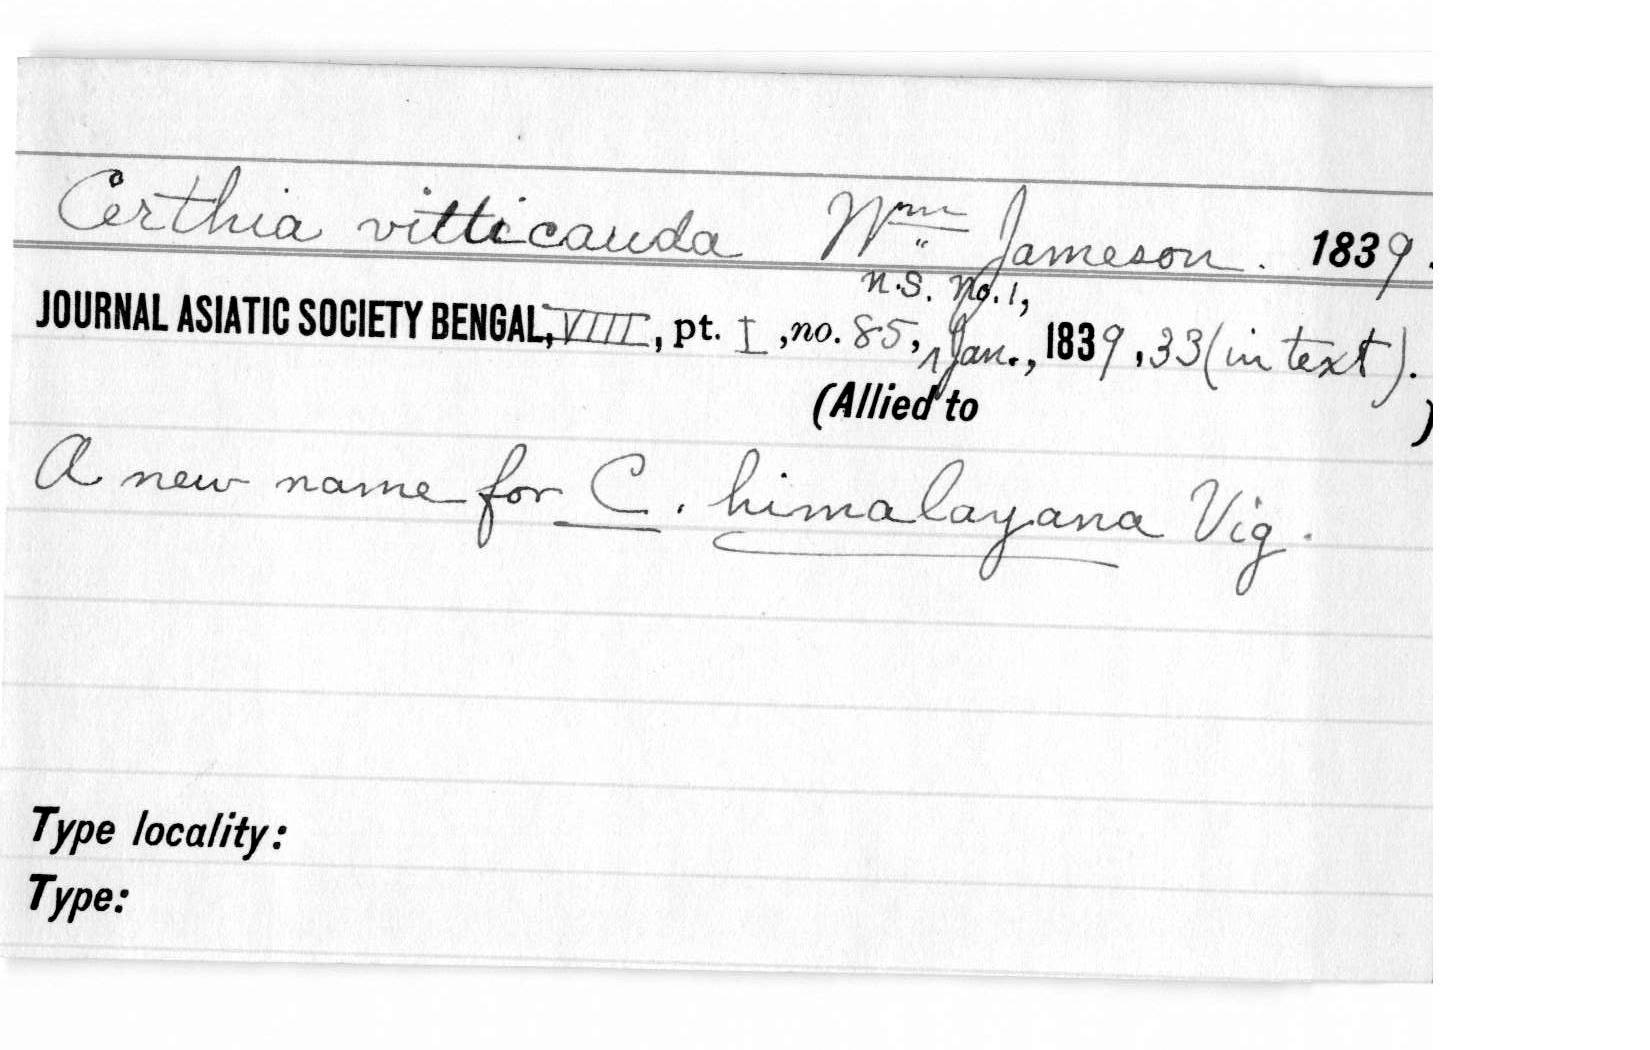 Certhia vitticauda Wm Jameson. 1839.
"
n.s. No. 1,
JOURNAL ASIATIC SOCIETY BENGAL, VIII, pt. I, no. 85, ʌ Jan., 1839, 33 (in text).
(Allied to )
A new name for C. himalayana Vig.
Type locality:
Type: